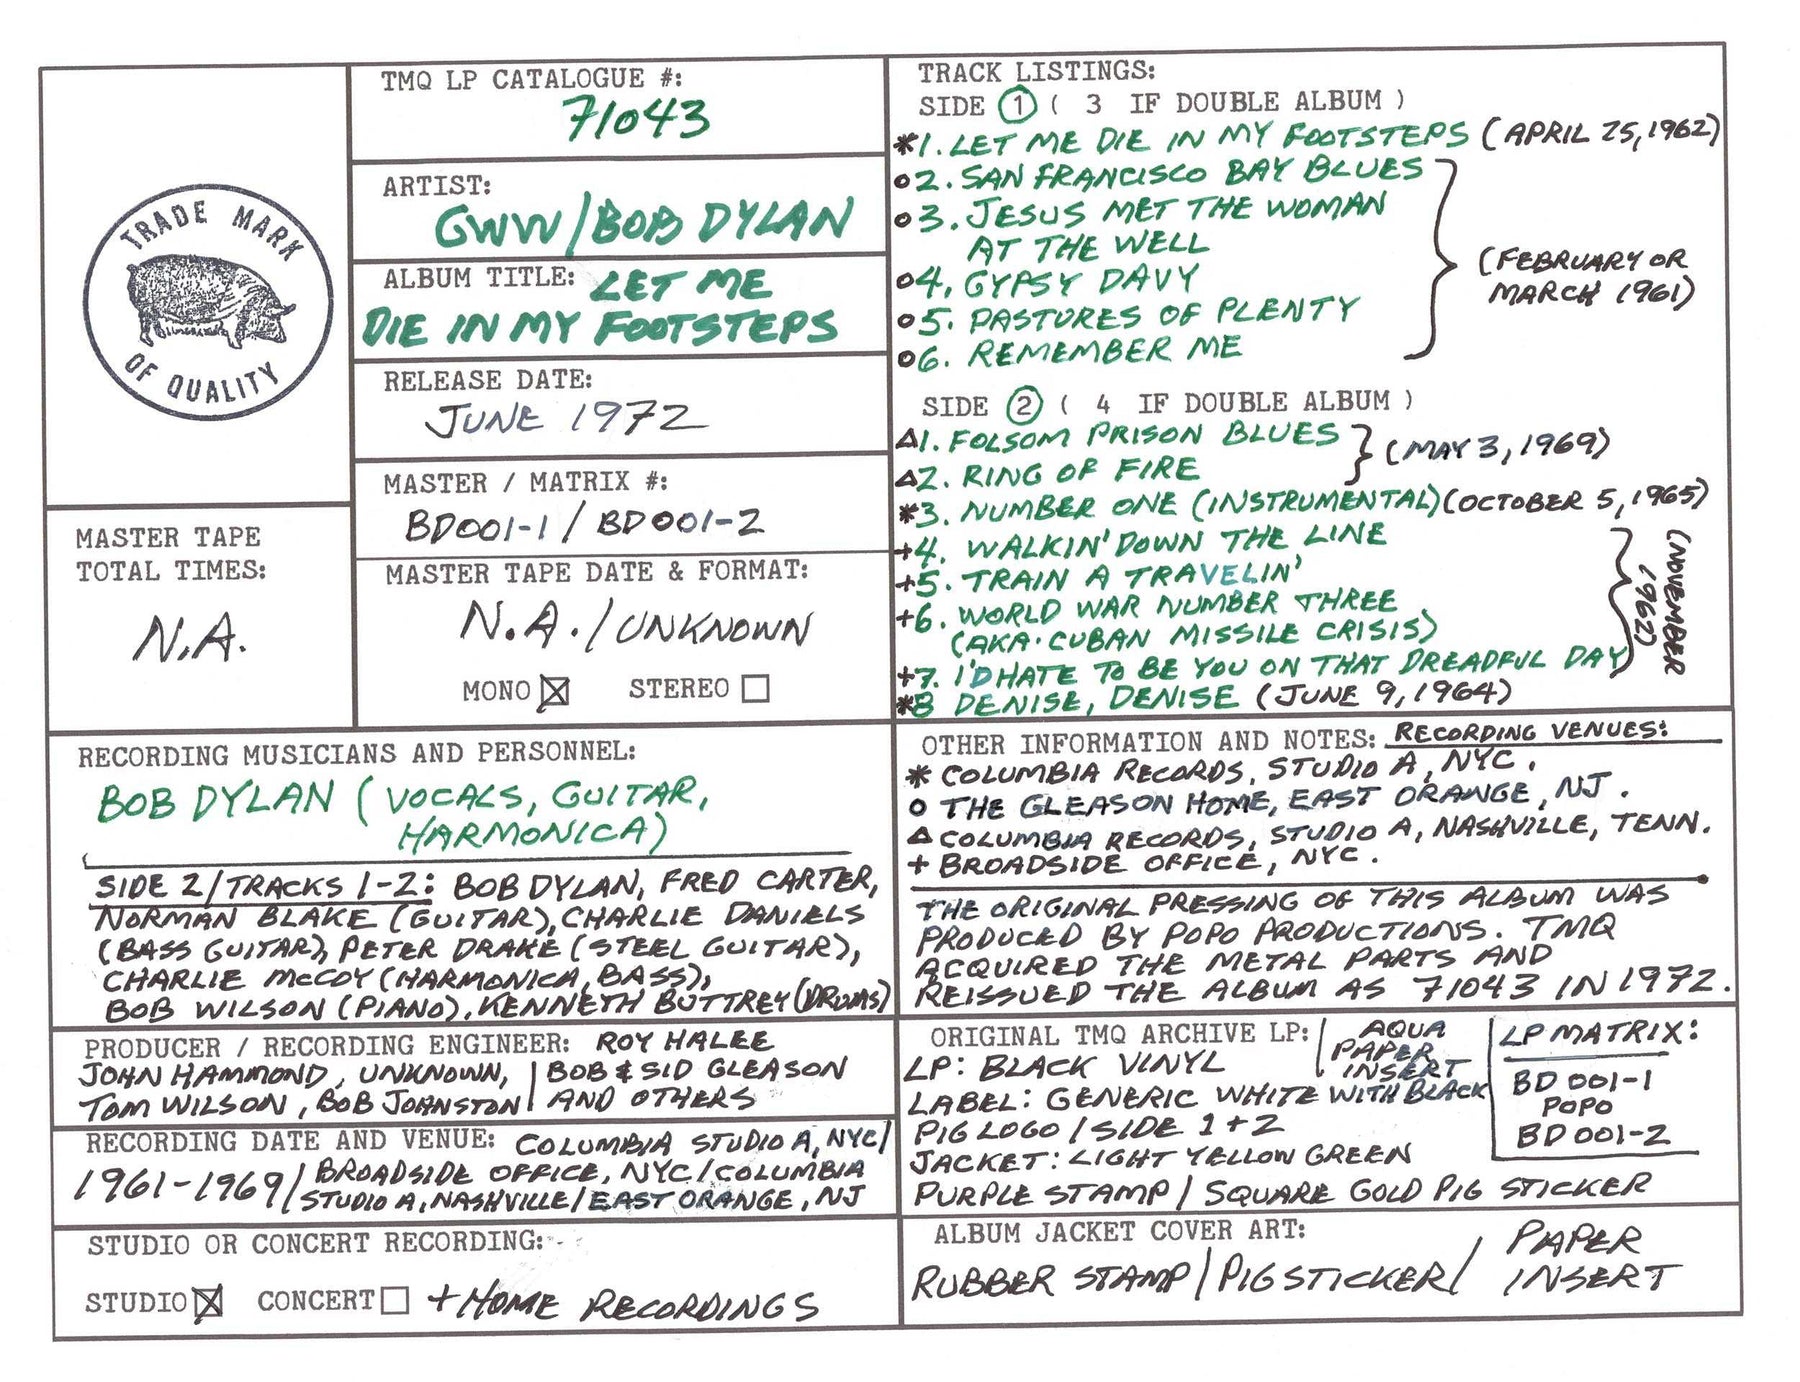 TRADE MARK
OF QUALITY
TMQ LP CATALOGUE #:
71043
ARTIST:
GWW/BOB DYLAN
ALBUM TITLE: LET ME
DIE IN MY FOOTSTEPS
RELEASE DATE:
JUNE 1972
MASTER / MATRIX #:
BD001-1 / BD001-2
MASTER TAPE
TOTAL TIMES:
N.A.
MASTER TAPE DATE & FORMAT:
N.A./UNKNOWN
MONO ☒ STEREO ☐
TRACK LISTINGS:
SIDE 1 ( 3 IF DOUBLE ALBUM )
*1. LET ME DIE IN MY FOOTSTEPS (APRIL 25, 1962)
o2. SAN FRANCISCO BAY BLUES
o3. JESUS MET THE WOMAN
AT THE WELL
o4. GYPSY DAVY
o5. PASTURES OF PLENTY
o6. REMEMBER ME
(FEBRUARY OR
MARCH 1961)
SIDE 2 ( 4 IF DOUBLE ALBUM )
Δ1. FOLSOM PRISON BLUES
Δ2. RING OF FIRE
(MAY 3, 1969)
*3. NUMBER ONE (INSTRUMENTAL) (OCTOBER 5, 1965)
+4. WALKIN' DOWN THE LINE
+5. TRAIN A TRAVELIN'
+6. WORLD WAR NUMBER THREE
(AKA. CUBAN MISSILE CRISIS)
+7. I'D HATE TO BE YOU ON THAT DREADFUL DAY
(NOVEMBER
1962)
*8 DENISE, DENISE (JUNE 9, 1964)
RECORDING MUSICIANS AND PERSONNEL:
BOB DYLAN (VOCALS, GUITAR,
HARMONICA)
SIDE 2/TRACKS 1-2: BOB DYLAN, FRED CARTER,
NORMAN BLAKE (GUITAR), CHARLIE DANIELS
(BASS GUITAR), PETER DRAKE (STEEL GUITAR),
CHARLIE McCOY (HARMONICA, BASS),
BOB WILSON (PIANO), KENNETH BUTTREY (DRUMS)
PRODUCER / RECORDING ENGINEER: ROY HALEE
JOHN HAMMOND, UNKNOWN, | BOB & SID GLEASON
TOM WILSON, BOB JOHNSTON | AND OTHERS
RECORDING DATE AND VENUE: COLUMBIA STUDIO A, NYC/
1961-1969/ BROADSIDE OFFICE, NYC/COLUMBIA
STUDIO A, NASHVILLE/EAST ORANGE, NJ
STUDIO OR CONCERT RECORDING:
STUDIO ☒ CONCERT ☐ + HOME RECORDINGS
OTHER INFORMATION AND NOTES: RECORDING VENUES:
* COLUMBIA RECORDS, STUDIO A, NYC.
o THE GLEASON HOME, EAST ORANGE, NJ.
Δ COLUMBIA RECORDS, STUDIO A, NASHVILLE, TENN.
+ BROADSIDE OFFICE, NYC.
THE ORIGINAL PRESSING OF THIS ALBUM WAS
PRODUCED BY POPO PRODUCTIONS. TMQ
ACQUIRED THE METAL PARTS AND
REISSUED THE ALBUM AS 71043 IN 1972.
ORIGINAL TMQ ARCHIVE LP:
LP: BLACK VINYL
AQUA
PAPER
INSERT
LABEL: GENERIC WHITE WITH BLACK
PIG LOGO / SIDE 1 + 2
JACKET: LIGHT YELLOW GREEN
PURPLE STAMP / SQUARE GOLD PIG STICKER
LP MATRIX:
BD 001-1
POPO
BD 001-2
ALBUM JACKET COVER ART:
RUBBER STAMP/PIG STICKER/ PAPER
INSERT